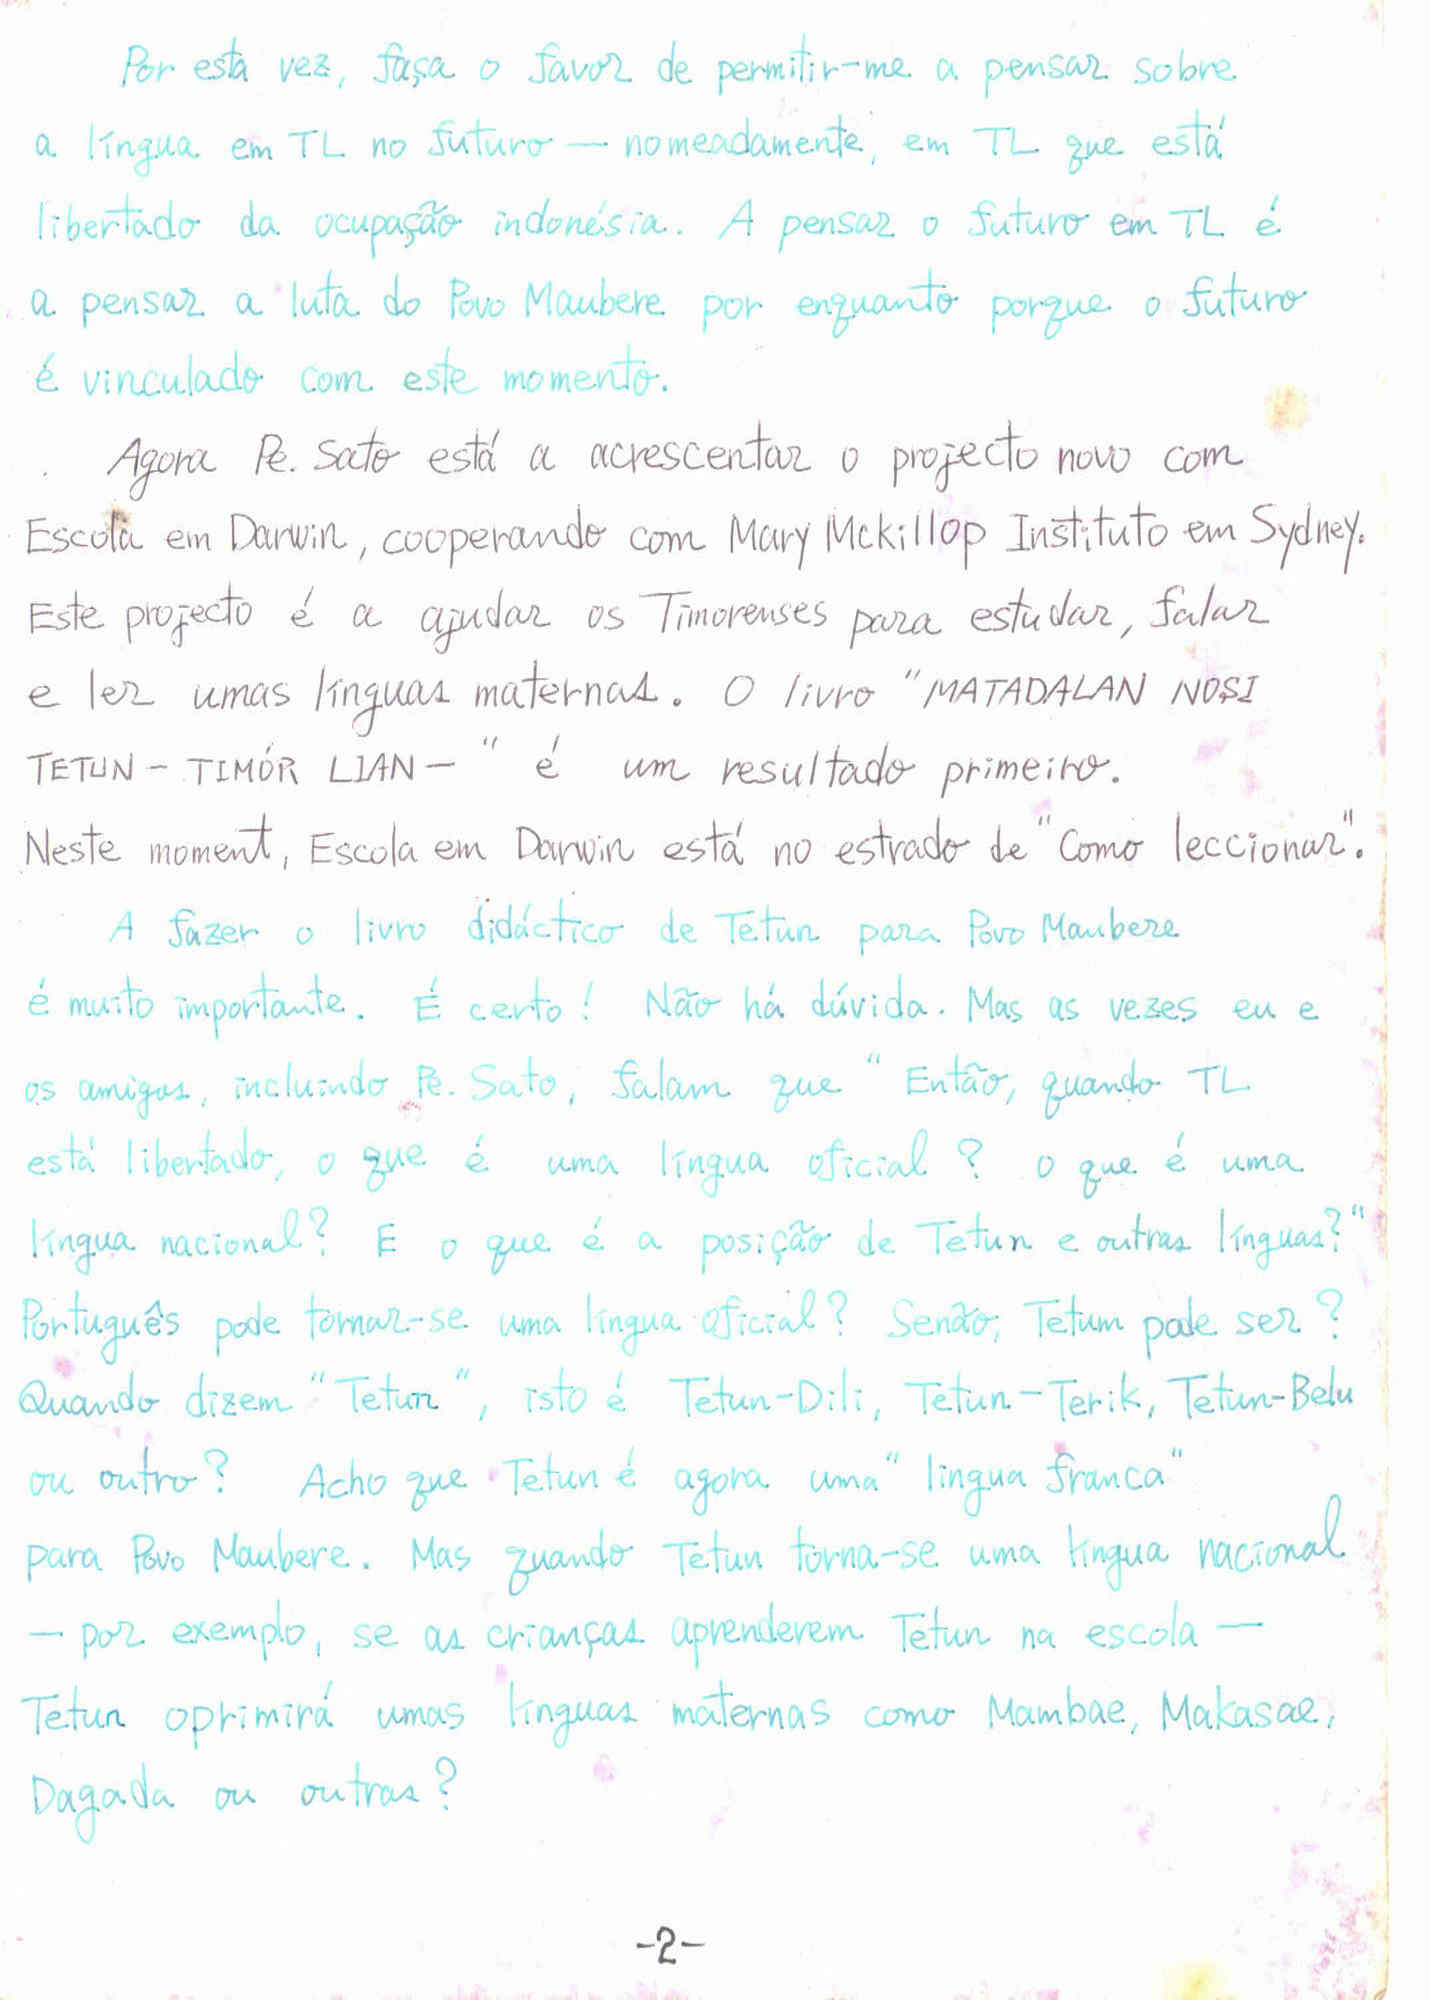 Por esta vez, faça o favor de permitir-me a pensar sobre
a língua em TL no futuro — nomeadamente, em TL que está
libertado da ocupação indonésia. A pensar o futuro em TL é
a pensar a luta do Povo Maubere por enquanto porque o futuro
é vinculado com este momento.
Agora Pe. Sato está a acrescentar o projecto novo com
Escola em Darwin, cooperando com Mary Mckillop Instituto em Sydney.
Este projecto é a ajudar os Timorenses para estudar, falar
e ler umas línguas maternas. O livro "MATADALAN NOSI
TETUN - TIMÓR LIAN - " é um resultado primeiro.
Neste moment, Escola em Darwin está no estrado de "Como leccionar".
A fazer o livro didáctico de Tetun para Povo Maubere
é muito importante. É certo! Não há dúvida. Mas as vezes eu e
os amigos, incluindo Pe. Sato, falam que "Então, quando TL
está libertado, o que é uma língua oficial? o que é uma
língua nacional? E o que é a posição de Tetun e outras línguas?"
Português pode tornar-se uma língua oficial? Senão, Tetum pode ser?
Quando dizem "Tetun", isto é Tetun-Dili, Tetun-Terik, Tetun-Belu
ou outro? Acho que Tetun é agora uma "lingua franca"
para Povo Maubere. Mas quando Tetun torna-se uma língua nacional
— por exemplo, se as crianças aprenderem Tetun na escola —
Tetun oprimirá umas línguas maternas como Mambae, Makasae,
Dagada ou outras?
-2-